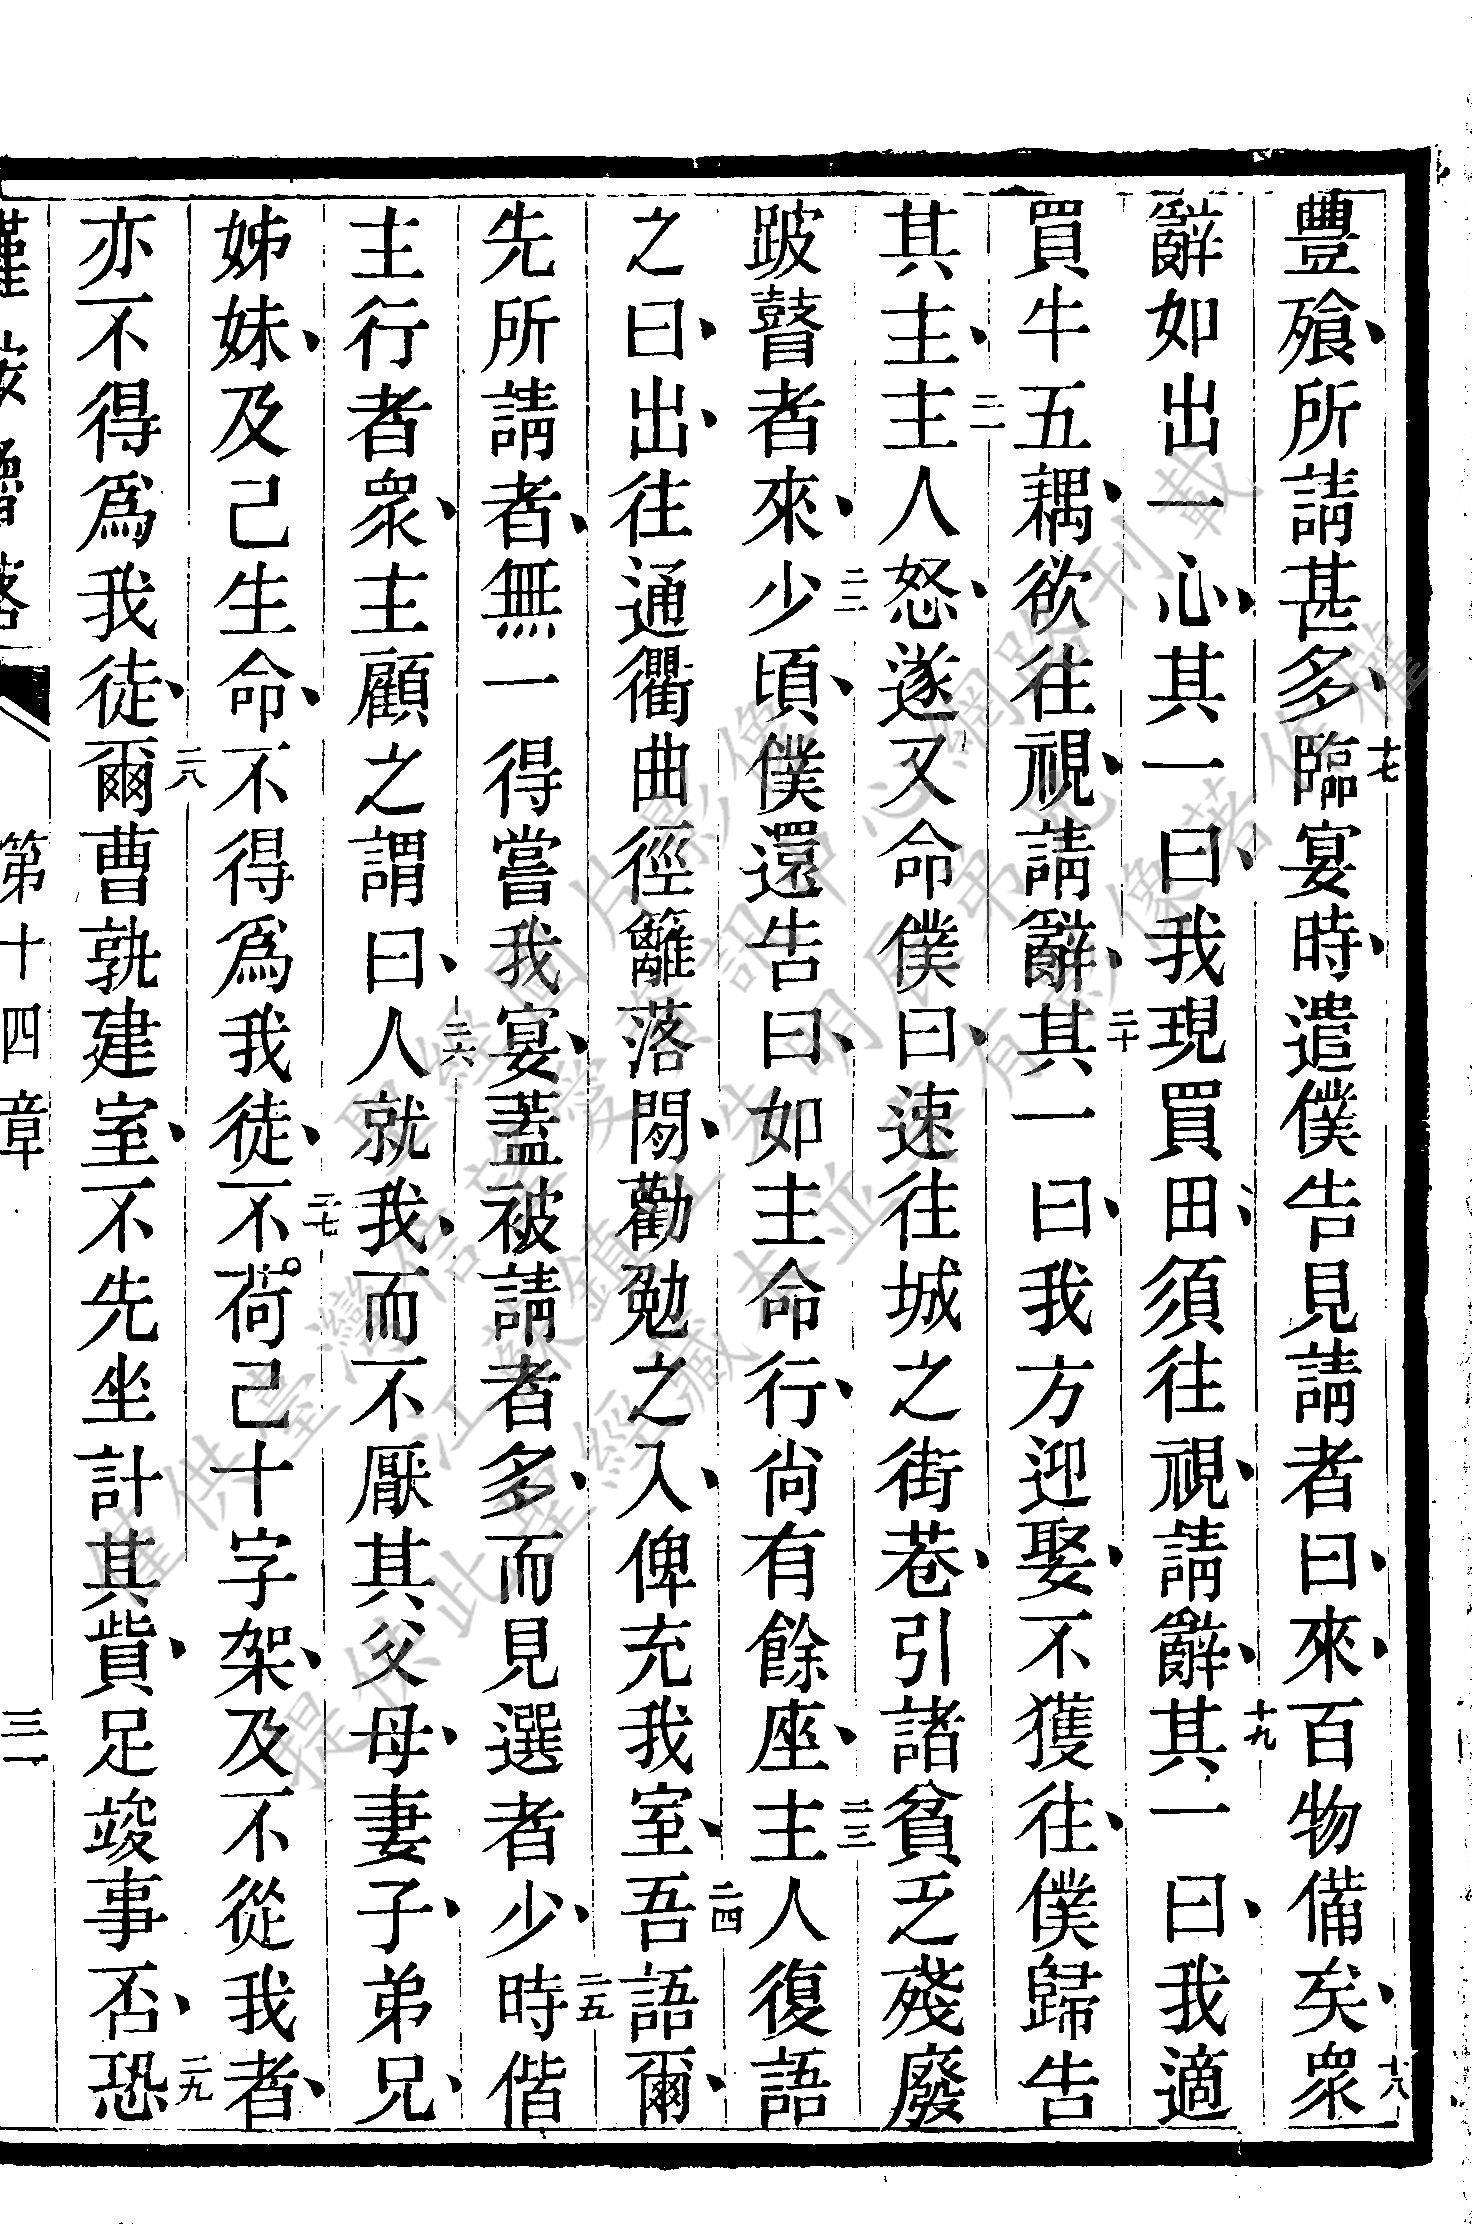 豐飱、所請甚多、十七臨宴時、遣僕告見請者曰、來、百物備矣、十八眾
辭如出一心、其一曰、我現買田、須往視、請辭、十九其一曰、我適
買牛五耦、欲往視、請辭、二十其一曰、我方迎娶、不獲往、僕歸告
其主、二一主人怒、遂又命僕曰、速往城之街巷、引諸貧乏殘廢
跛瞽者來、二二少頃、僕還告曰、如主命行、尙有餘座、二三主人復語
之曰、出、往通衢曲徑籬落閒、勸勉之入、俾充我室、二四吾語爾、
先所請者、無一得嘗我宴、蓋被請者多、而見選者少、二五時偕
主行者眾、主顧之謂曰、二六人就我、而不厭其父母、妻子、弟兄、
姊妹、及己生命、不得爲我徒、二七不荷己十字架、及不從我者、
亦不得爲我徒、二八爾曹孰建室、不先坐計其貲、足竣事否、二九恐
第十四章 三一